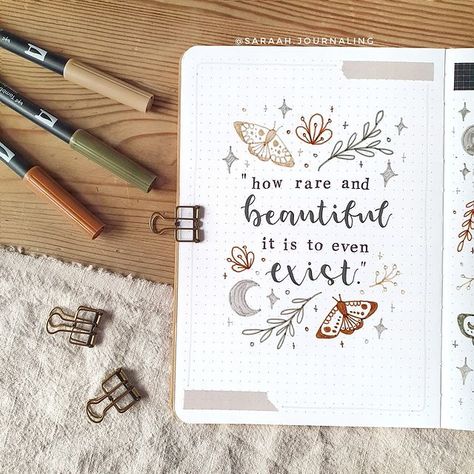 @SARAAH.JOURNALING
"how rare and
beautiful
it is to even
exist."